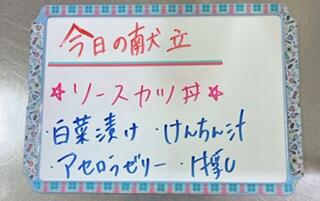 今日の献立
☆ソースカツ丼☆
・白菜漬け ・けんちん汁
・アセロラゼリー